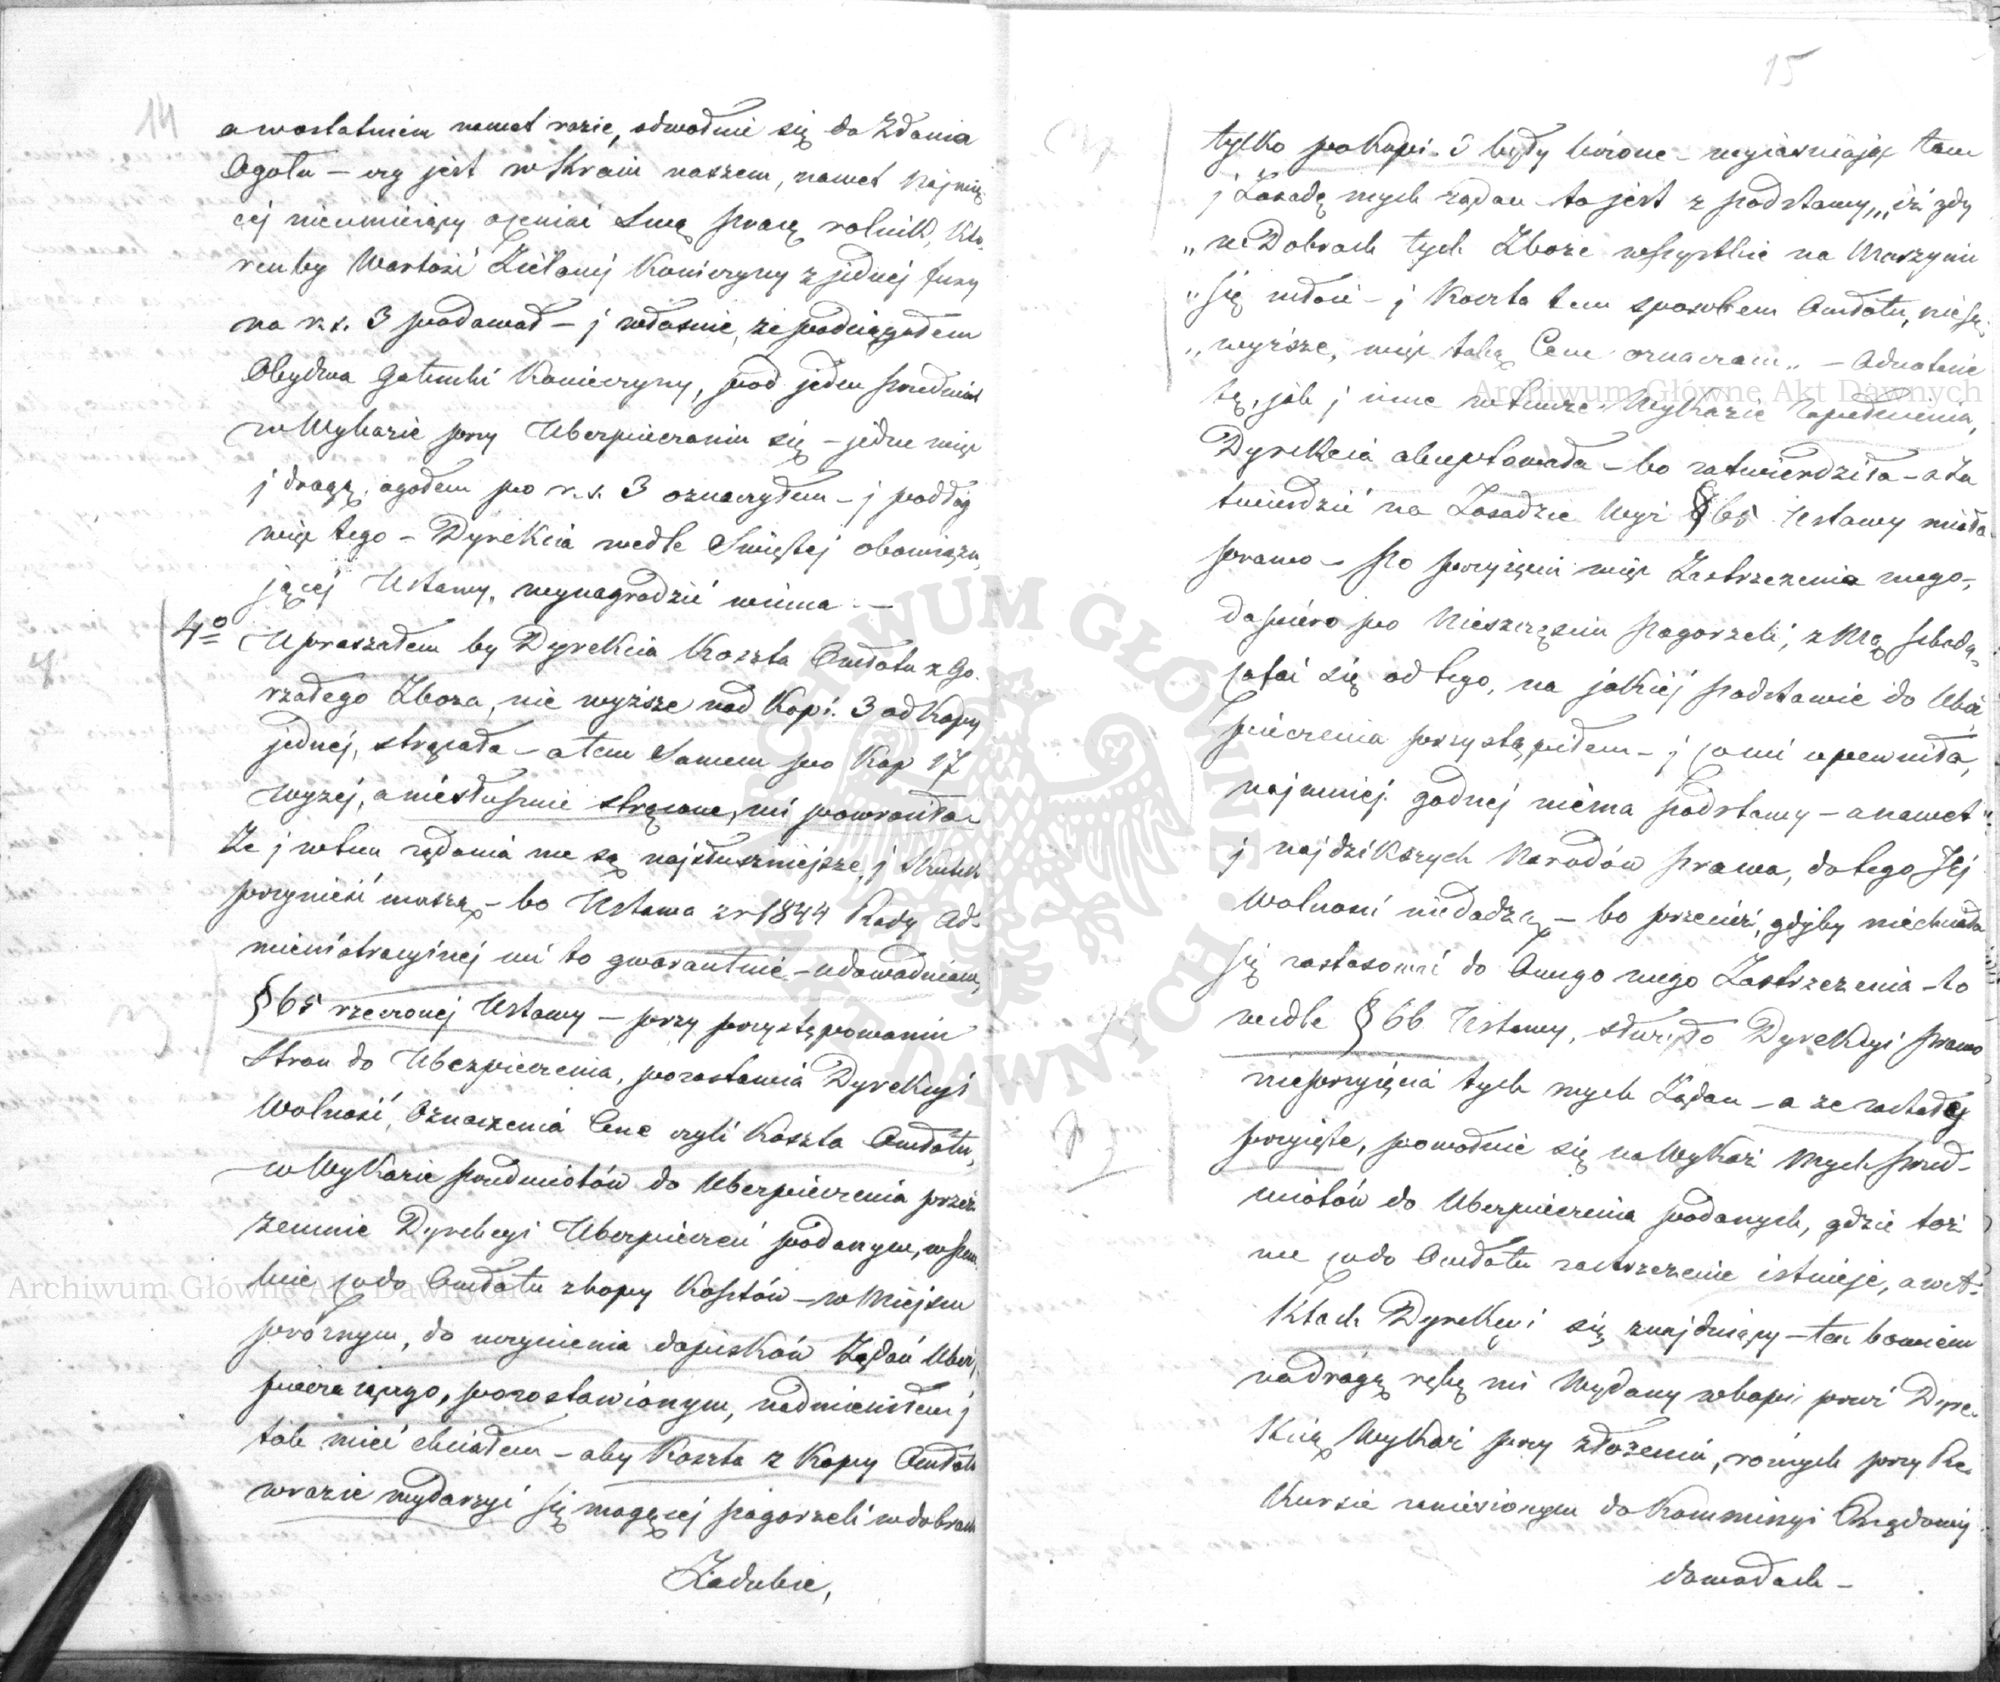 14
a wostatniem nawet razie, odwołuie się do Zdania
Ogółu – czy jest w Kraiu naszem, nawet Najmię
cej nieumieiący oceniać Swą pracę rolnik, Któ-
renby Wartość Zielonej Koniczyny z jednej fury
na r.s. 3 podawał – j właśnie, że podciągałem
Obydwa Gatunki Koniczyny, pod jeden przedmiot
w Wykazie przy Ubezpieczeniu się – jedne więc
j drugą, ogółem po r.s. 3 oznaczyłem – j podług
więc tego – Dyrekcia wedle Swiętej obowiązu-
jącej Ustawy, wynagrodzić winna. –
4o Upraszałem by Dyrekcia Koszta Omłotu z Go-
rzałego Zboża, nie wyższe nad Kopi. 3 od Kopy
jednej, strącała – a tem Samem po Kop 17
wyżej, a niesłusznie strącone, mi powróciła –
Że j w tem rządania me są najsłuszniejsze, j Skutek
przynieść muszą – bo Ustawa z r 1844 Rady Ad-
ministracyinej mi to gwarantuie – udowadniam,
§ 65 rzeczonej Ustawy – przy przystępowaniu
Stron do Ubezpieczenia, pozostawia Dyrekcyi
Wolność, Oznaczenia Cene czyli Koszta Omłotu,
w Wykazie przedmiotów do Ubezpieczenia przez
zemnie Dyrekcyi Ubezpieczeń podanym, w
co do Omłotu z kopy Kosztów – w Miejscu
próżnym, do uczynienia dopisków Żądań Ubez-
pieczaiącego, pozostawionym, nadmieniłem j
tak mieć chciałem – aby Koszta z Kopy Omłotu
w razie wydarzyć się mogącej pogorzeli w dobrach
Zadubie,
15
tylko po Kopi. 3 były liczone – wyiaśniaiąc tam
j Zasadę mych rządań to jest z podstawy „iż gdy
„w Dobrach tych Zboże wszystkie na Maszynie
„się młóci – j Koszta tem sposobem Omłotu, nie są
„wyższe, więc taką Cene oznaczam„ – Adnotacie
tę, jak j inne w temże Wykazie zapełnienia,
Dyrekcia akceptowała – bo zatwierdziła – a Za
twierdzić na Zasadzie Wyż § 65 Ustawy miała
prawo – Po przyięciu więc Zastrzeżenia mego,
dopiero po Nieszczęściu Pogorzeli, z Mą
cofać się od tego, na jakiej podstawie do Ubez-
pieczenia przystąpiłem – j co mi upewniła,
najmniej godnej niéma podstawy – a nawet
j najdzikszych Narodów prawa, do tego Jej
Wolności niedadzą – bo przecież, gdyby niechciała
się zastosować do Onego mego Zastrzeżenia – to
wedle § 66 Ustawy, służyło Dyrekcyi prawo
nieprzyięcia tych mych Żądań – a że zostały
przyięte, powołuie się na Wykaz Mych przed-
miotów do Ubezpieczenia podanych, gdzie toż
me co do Omłotu zastrzeżenie istnieje, a w A-
Ktach Dyrekcyi się znajduiący – ten bowiem
na drogą rękę mi Wydany w kopii przez Dyre-
Kcią Wykaz przy złożeniu, różnych przy Re-
Kursie zaniesionym do Kommissyi Rządowej
dowodach –